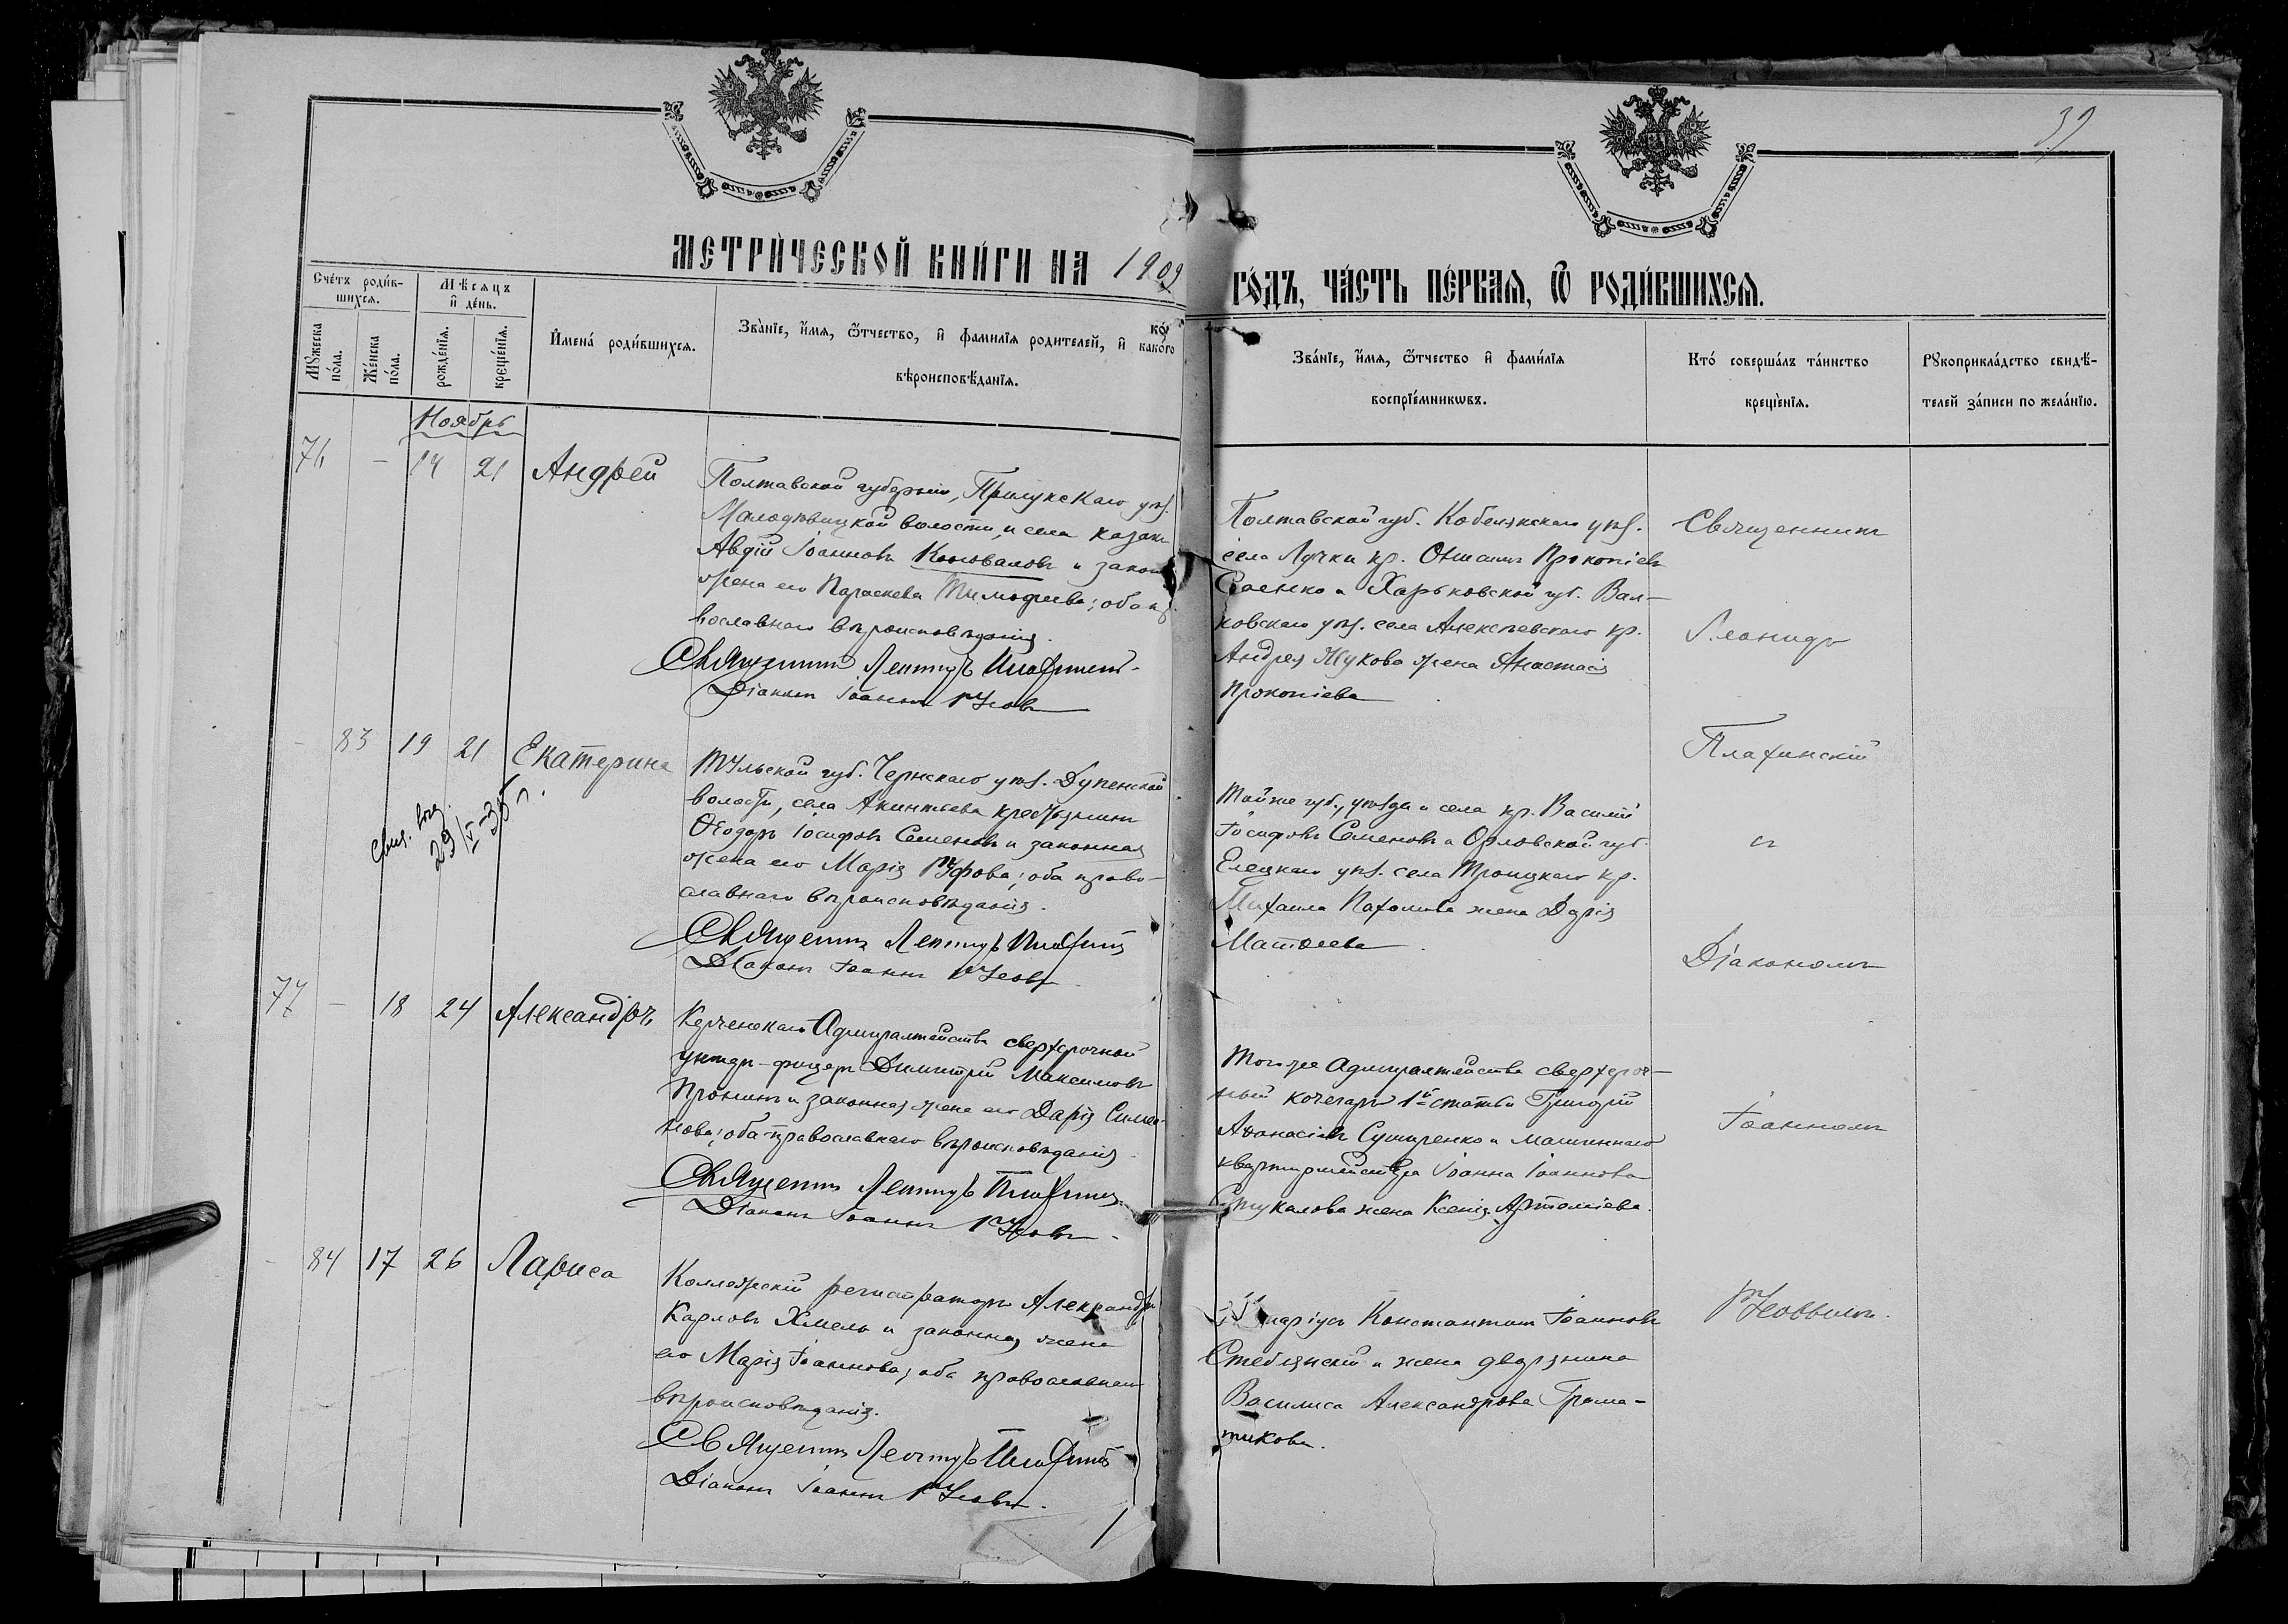 39
МЕТРИ́ЧЕСКОЙ КНИ́ГИ НА 1909
ГО́ДЪ, ЧА́СТЬ ПЕ́РВАЯ, Ѿ РОДИ́ВШИХСЯ.
Сче́тъ роди́в-
шихся.
Мѣсяцъ
и҆ де́нь.
Мꙋжеска
по́ла.
Же́нска
по́ла.
рожде́нїя.
креще́нїя.
И҆мена́ роди́вшихся.
Зва́нїе, и҆́мя, ѻ҆́тчество, и҆ фамилїя родителей, и҆ како́го
вѣроисповѣ́данїя.
Зва́нїе, и҆́мя, ѻ҆́тчество и҆ фами́лїя
воспрїе́мникѡвъ.
Кто́ соверша́лъ та́инство
креще́нїя.
Рꙋкоприкла́дство свидѣ́-
телей за́писи по жела́нїю.
Ноябрь
76 - 14 21 Андрей
Полтавской губерніи, Прилукскаго уѣз.
Малодѣвицкой волости, и села казакъ
Авдій Іоанновъ Коноваловъ и закон
жена его Параскева Тимофеева; оба пр
вославнаго вѣроисповѣданія.
Священникъ Леонидъ
Діаконъ Іоаннъ
Полтавской губ. Кобелякскаго уѣз.
села Лучки кр. Прокопіевъ
и Харьковской губ. Вал-
ковскаго уѣз. села Алексѣевскаго кр.
Андрея Жукова жена Анастасія
Прокопіева
Священникъ
Леонидъ
Плахинскій
- 83 19 21 Екатерина
29/V-35 г.
Тульской губ. Чернскаго уѣз. Дупенской
волости, села Акинтьева крестьянинъ
Ѳеодоръ Іосифовъ Семеновъ и законная
жена его Марія Руфова; оба право-
славнаго вѣроисповѣданія.
Священникъ Леонидъ
Діаконъ Іоаннъ
Той же губ., уѣзда и села кр. Василій
Іосифовъ Семеновъ и Орловской губ.
Елецкаго уѣз. села Троицкаго кр.
Михаила Пахомова жена Дарія
Матѳеева
съ
Діакономъ
77 - 18 24 Александръ
Керченскаго Адмиралтейства сверхсрочной
унтеръ-фицеръ Димитрій Максимовъ
Пронинъ и законная жена его Дарія Симео-
нова; оба православнаго вѣроисповѣданія
Священникъ Леонидъ
Діаконъ Іоаннъ
Того же Адмиралтейства сверхсроч-
ный кочегаръ 1й статьи Григорій
Аѳанасіевъ и машиннаго
квартирмейстера Іоанна Іоаннова
Стукалова жена Ксенія
Іоанномъ
- 84 17 26 Лариса
Коллежскій регистраторъ Александръ
Карловъ Хмель и законная жена
его Марія Іоаннова; оба православнаго
вѣроисповѣданія.
Священникъ Леонидъ
Діаконъ Іоаннъ
Константинъ Іоанновъ
Стеблянскій и жена дворянина
Василиса Александрова Грама-
тикова.